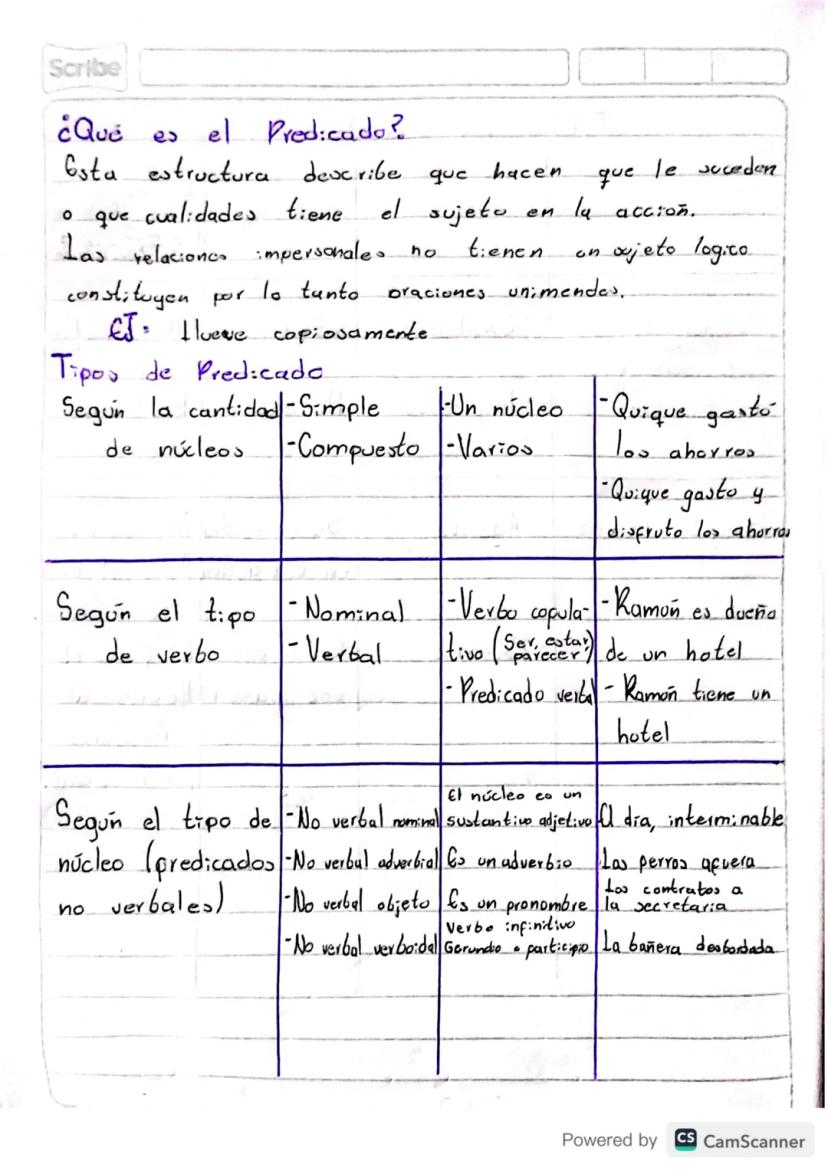 Scribe
¿Qué es el Predicado?
Esta estructura describe que hacen que le suceden
o que cualidades tiene el sujeto en la acción.
Las relaciones impersonales no tienen un sujeto logico
constituyen por lo tanto oraciones unimendes.
EJ: llueve copiosamente
Tipos de Predicado
Según la cantidad
de núcleos
-Simple
-Compuesto
-Un núcleo
-Varios
-Quique gastó
los ahorros
-Quique gasto y
disfruto los ahorros
Según el tipo
de verbo
-Nominal
-Verbal
-Verbo copula-
tivo (Ser, estar,
parecer)
-Predicado verbal
-Ramón es dueño
de un hotel
-Ramón tiene un
hotel
Según el tipo de
núcleo (predicados
no verbales)
-No verbal nominal
-No verbal adverbial
-No verbal objeto
-No verbal verboidal
El núcleo es un
sustantivo adjetivo
Es un adverbio
Es un pronombre
Verbo infinitivo
Gerundio o participio
El dia, interminable
Los perros afuera
Los contratos a
la secretaria
La bañera desbordada
Powered by CS CamScanner